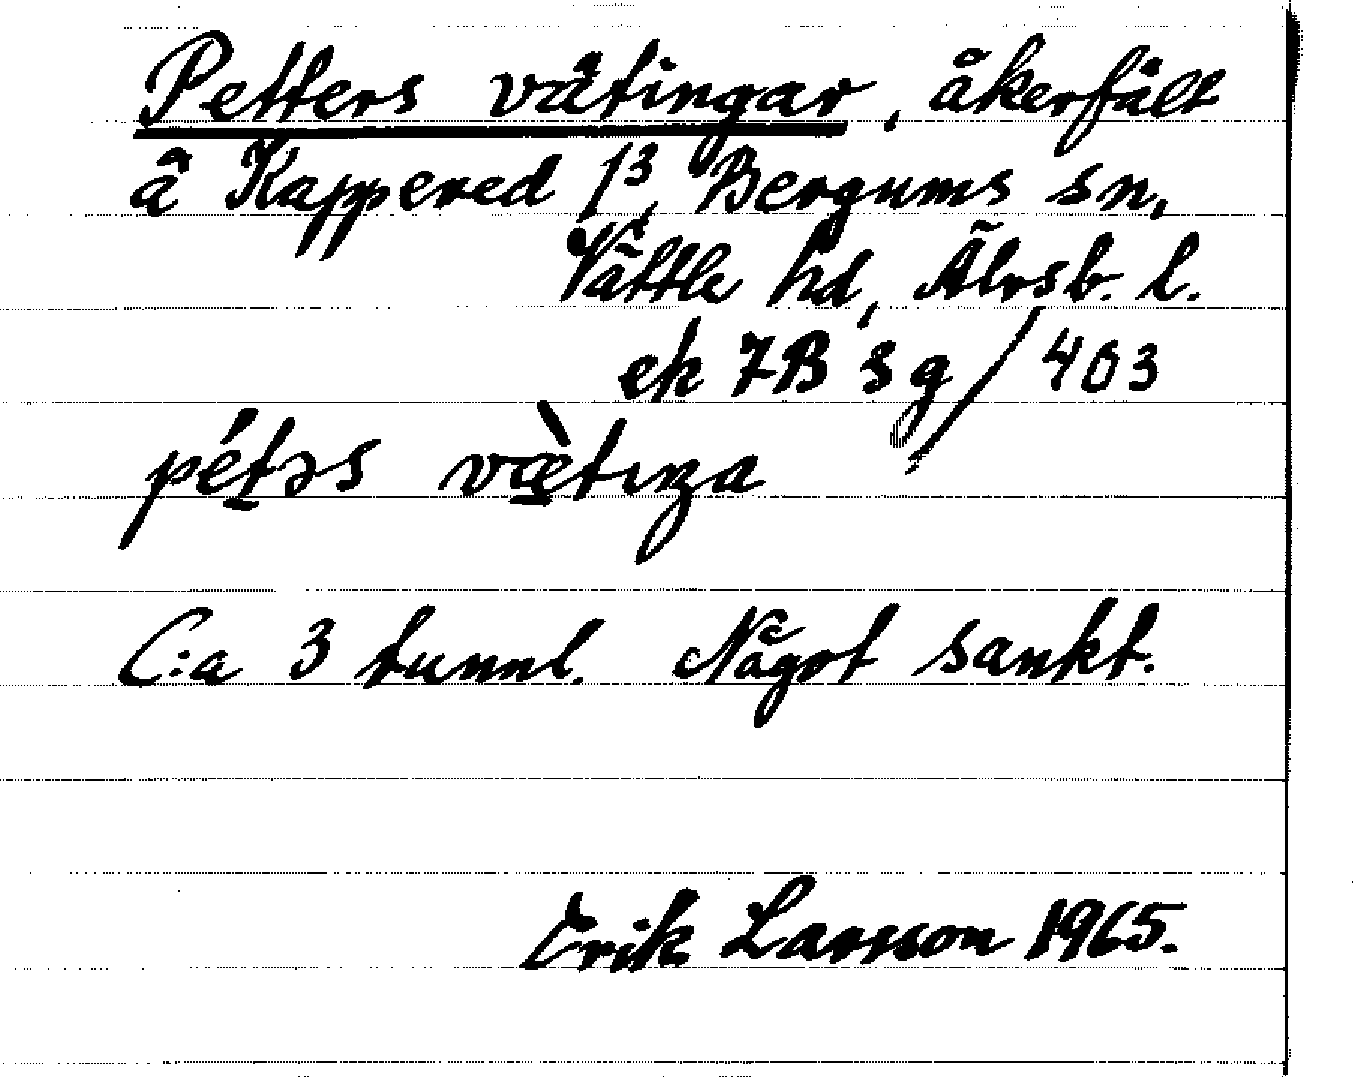 Petters vätingar, åkerfält
å Kappered 1³, Bergums sn,
Vättle hd, Älvsb. l.
ek 7B 8 g/403
pétəs vœ̀tıŋa
C:a 3 tunnl. Något sankt.
Erik Larsson 1965.